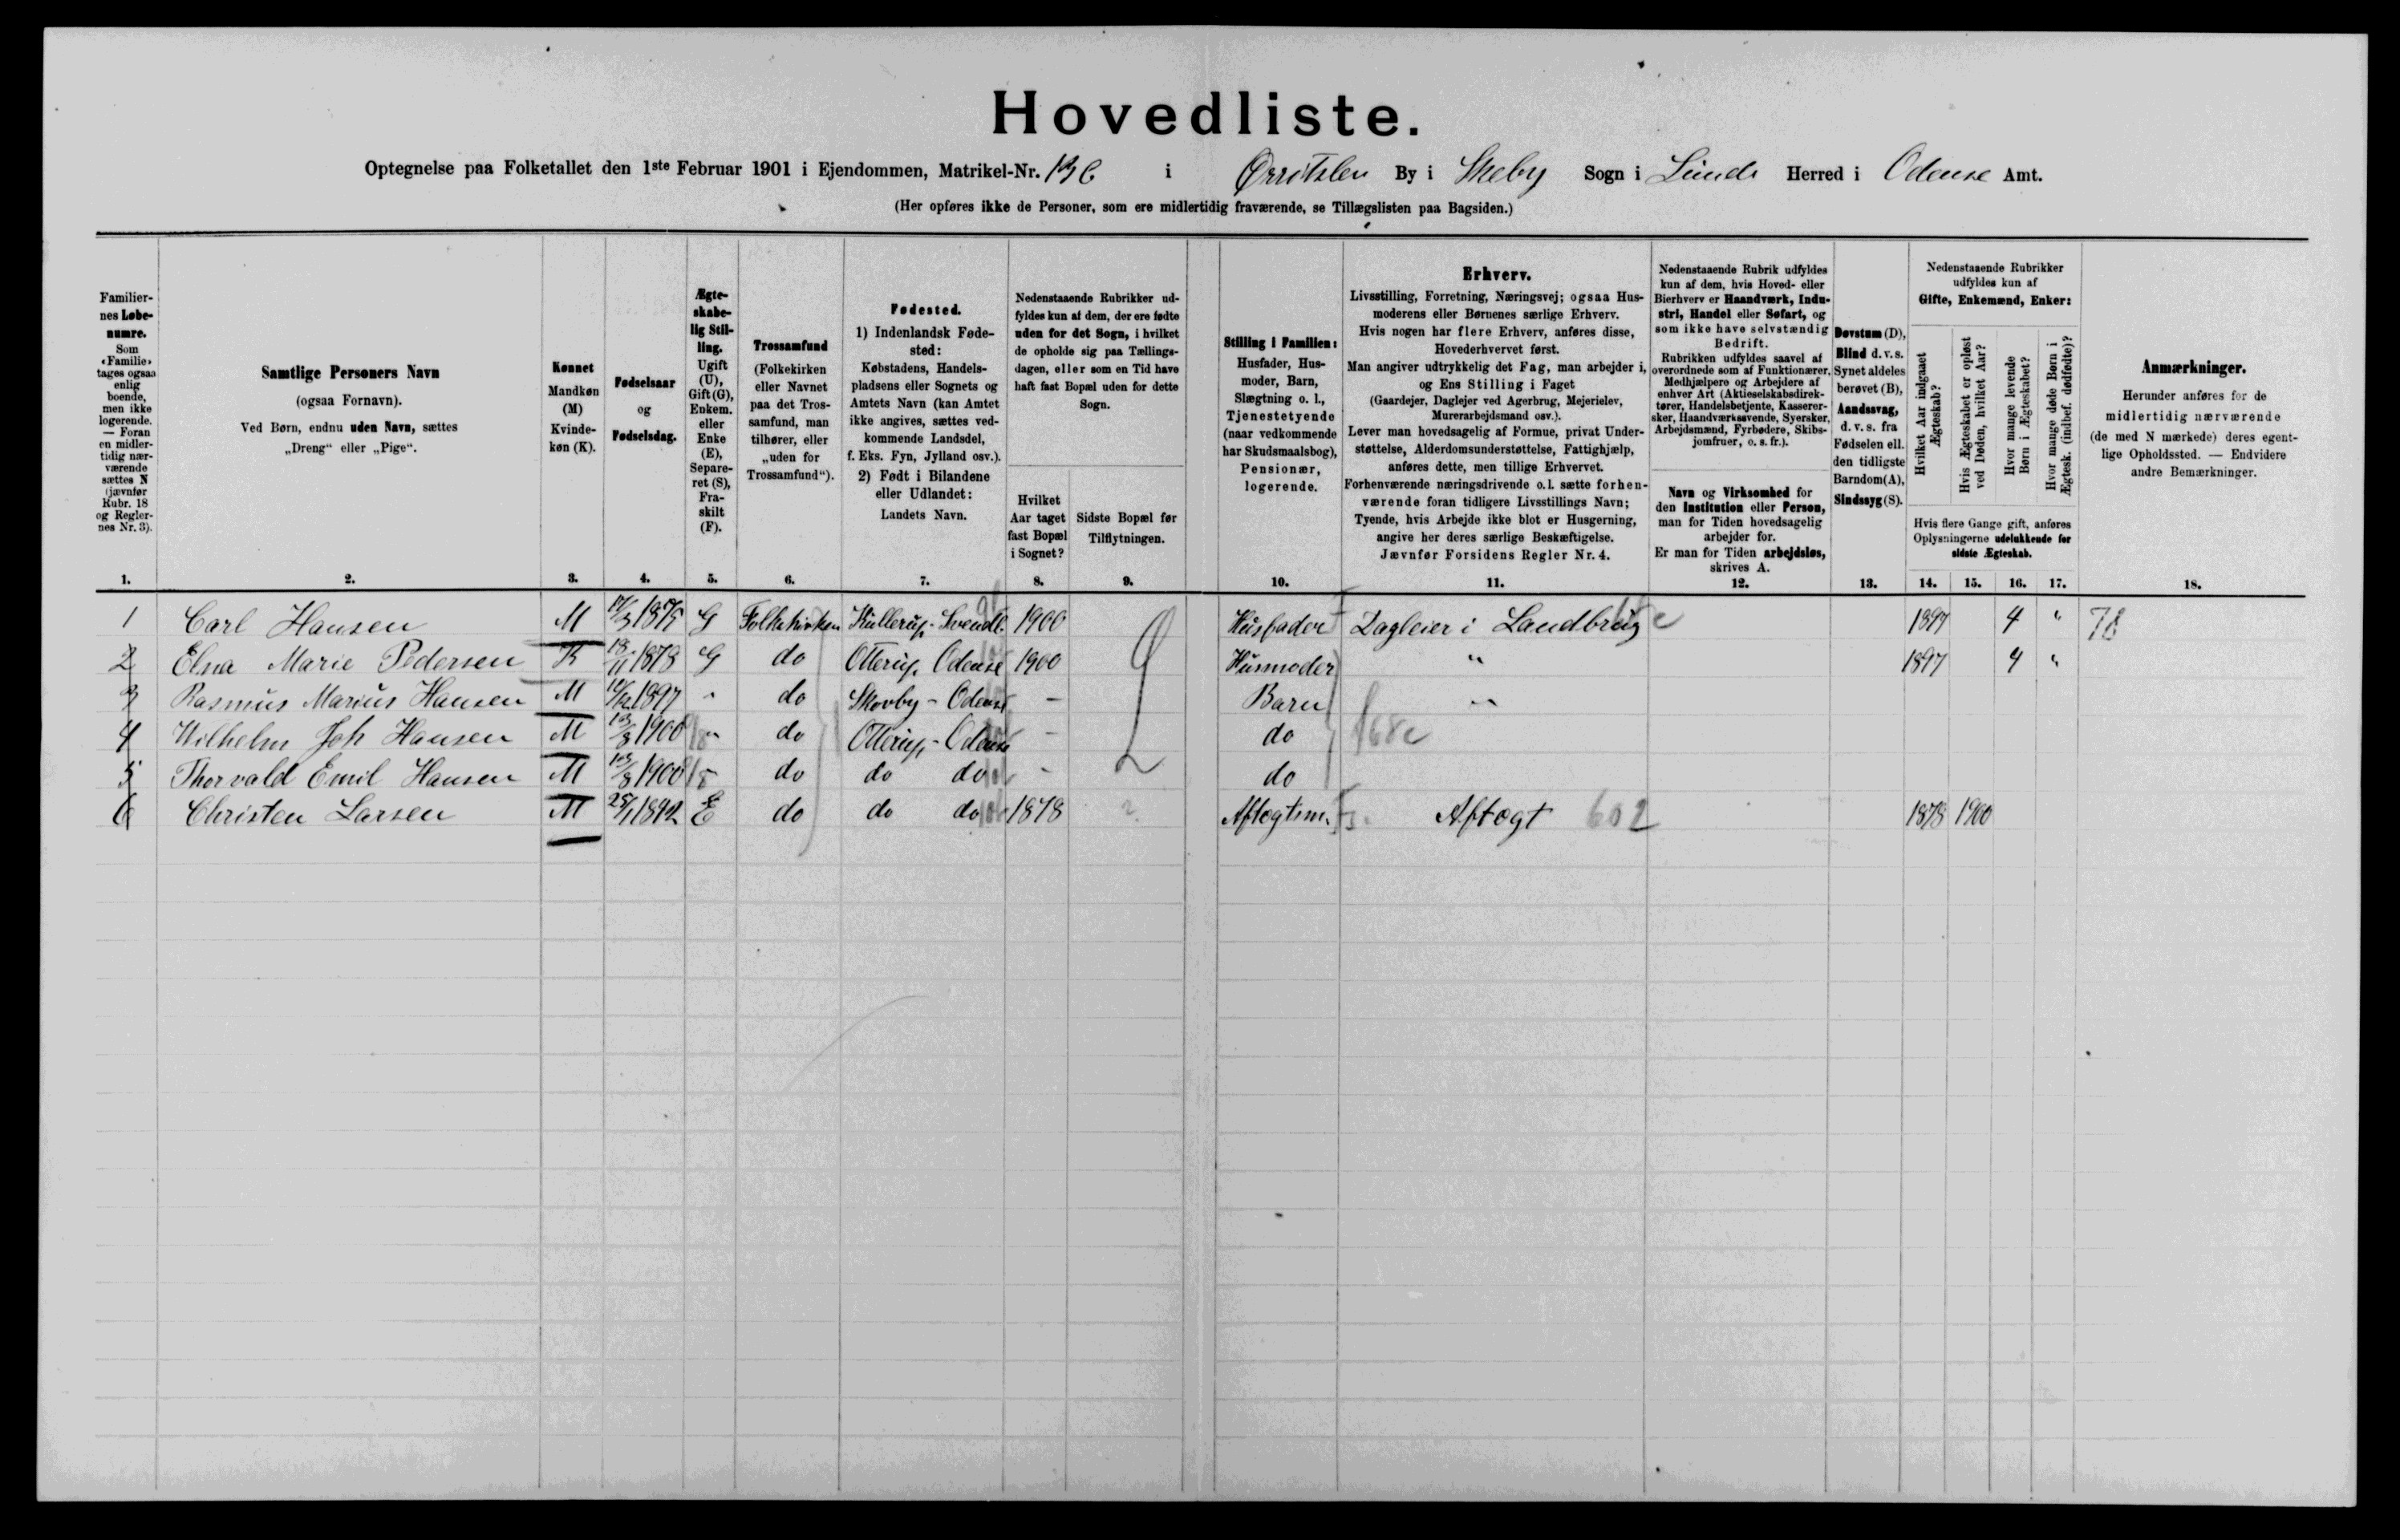 Hovedliste.
Optegnelse paa Folketallet den 1ste Februar 1901 i Ejendommen, Matrikel-Nr. i Ørritslev By i Skeby Sogn i Lunde Herred i Odense Amt.
(Her opføres ikke de Personer, som ere midlertidig fraværende, se Tillægslisten paa Bagsiden.)
Familier-
nes Løbe-
numre.
Som
«Familie»
tages ogsaa
enlig
boende,
men ikke
logerende.
— Foran
en midler-
tidig nær-
værende
sættes N
(jævnfør
Rubr. 18
og Regler-
nes Nr. 3).
Samtlige Personers Navn
(ogsaa Fornavn).
Ved Børn, endnu uden Navn, sættes
„Dreng“ eller „Pige“.
Kønnet
Mandkøn
(M)
Kvinde-
køn (K).
Fødselsaar
og
Fødselsdag.
Ægte-
skabe-
lig Stil-
ling.
Ugift
(U),
Gift (G),
Enkem.
eller
Enke
(E),
Separe-
ret (S),
Fra-
skilt
(F).
Trossamfund
(Folkekirken
eller Navnet
paa det Tros-
samfund, man
tilhører, eller
„uden for
Trossamfund“).
Fødested.
1) Indenlandsk Føde-
sted:
Købstadens, Handels-
pladsens eller Sognets og
Amtets Navn (kan Amtet
ikke angives, sættes ved-
kommende Landsdel,
f. Eks. Fyn, Jylland osv.).
2) Født i Bilandene
eller Udlandet:
Landets Navn.
Nedenstaaende Rubrikker ud-
fyldes kun af dem, der ere fødte
uden for det Sogn, i hvilket
de opholde sig paa Tællings-
dagen, eller som en Tid have
haft fast Bopæl uden for dette
Sogn.
Hvilket
Aar taget
fast Bopæl
i Sognet?
Sidste Bopæl før
Tilflytningen.
Stilling i Familien:
Husfader, Hus-
moder, Barn,
Slægtning o. l.,
Tjenestetyende
(naar vedkommende
har Skudsmaalsbog),
Pensionær,
logerende.
Erhverv.
Livsstilling, Forretning, Næringsvej; ogsaa Hus-
moderens eller Børnenes særlige Erhverv.
Hvis nogen har flere Erhverv, anføres disse,
Hovederhvervet først.
Man angiver udtrykkelig det Fag, man arbejder i,
og Ens Stilling i Faget
(Gaardejer, Daglejer ved Agerbrug, Mejerielev,
Murerarbejdsmand osv.).
Lever man hovedsagelig af Formue, privat Under-
støttelse, Alderdomsunderstøttelse, Fattighjælp,
anføres dette, men tillige Erhvervet.
Forhenværende næringsdrivende o. l. sætte forhen-
værende foran tidligere Livsstillings Navn;
Tyende, hvis Arbejde ikke blot er Husgerning,
angive her deres særlige Beskæftigelse.
Jævnfør Forsidens Regler Nr. 4.
Nedenstaaende Rubrik udfyldes
kun af dem, hvis Hoved- eller
Bierhverv er Haandværk, Indu-
stri, Handel eller Søfart, og
som ikke have selvstændig
Bedrift.
Rubrikken udfyldes saavel af
overordnede som af Funktionærer,
Medhjælpere og Arbejdere af
enhver Art (Aktieselskabsdirek-
tører, Handelsbetjente, Kasserer-
sker, Haandværkssvende, Syersker,
Arbejdsmænd, Fyrbødere, Skibs-
jomfruer, o. s. fr.).
Navn og Virksomhed for
den Institution eller Person,
man for Tiden hovedsagelig
arbejder for.
Er man for Tiden arbejdsløs,
skrives A.
Døvstum (D),
Blind d. v. s.
Synet aldeles
berøvet (B),
Aandssvag,
d. v. s. fra
Fødselen ell.
den tidligste
Barndom (A),
Sindssyg (S).
Nedenstaaende Rubrikker
udfyldes kun af
Gifte, Enkemænd, Enker:
Hvilket Aar indgaaet
Ægteskab?
Hvis Ægteskabet er opløst
ved Døden, hvilket Aar?
Hvor mange levende
Børn i Ægteskabet?
Hvor mange døde Børn i
Ægtesk. (indbef. dødfødte)?
Hvis flere Gange gift, anføres
Oplysningerne udelukkende for
sidste Ægteskab.
Anmærkninger.
Herunder anføres for de
midlertidig nærværende
(de med N mærkede) deres egent-
lige Opholdssted. — Endvidere
andre Bemærkninger.
1. 2. 3. 4. 5. 6. 7. 8. 9. 10. 11. 12. 13. 14. 15. 16. 17. 18.
1 Carl Hansen M 1875 G Folkekirken Kullerup-Svendb. 1900 Husfader Dagleier i Landbrug 1897 4 " 78
2 Elna Marie Pedersen K 1878 G do Otterup Odense 1900 Husmoder " 1897 4 "
3 Rasmus Marius Hansen M 1897 " do Skovby - Odense - Barn "
4 Wilhelm Joh Hansen M 1900 " do Otterup - Odense - do
5 Thorvald Emil Hansen M 1900 do do do - do
6 Christen Larsen M 1842 E do do do 1878 Aftægtsm. Aftægt 602 1878 1900